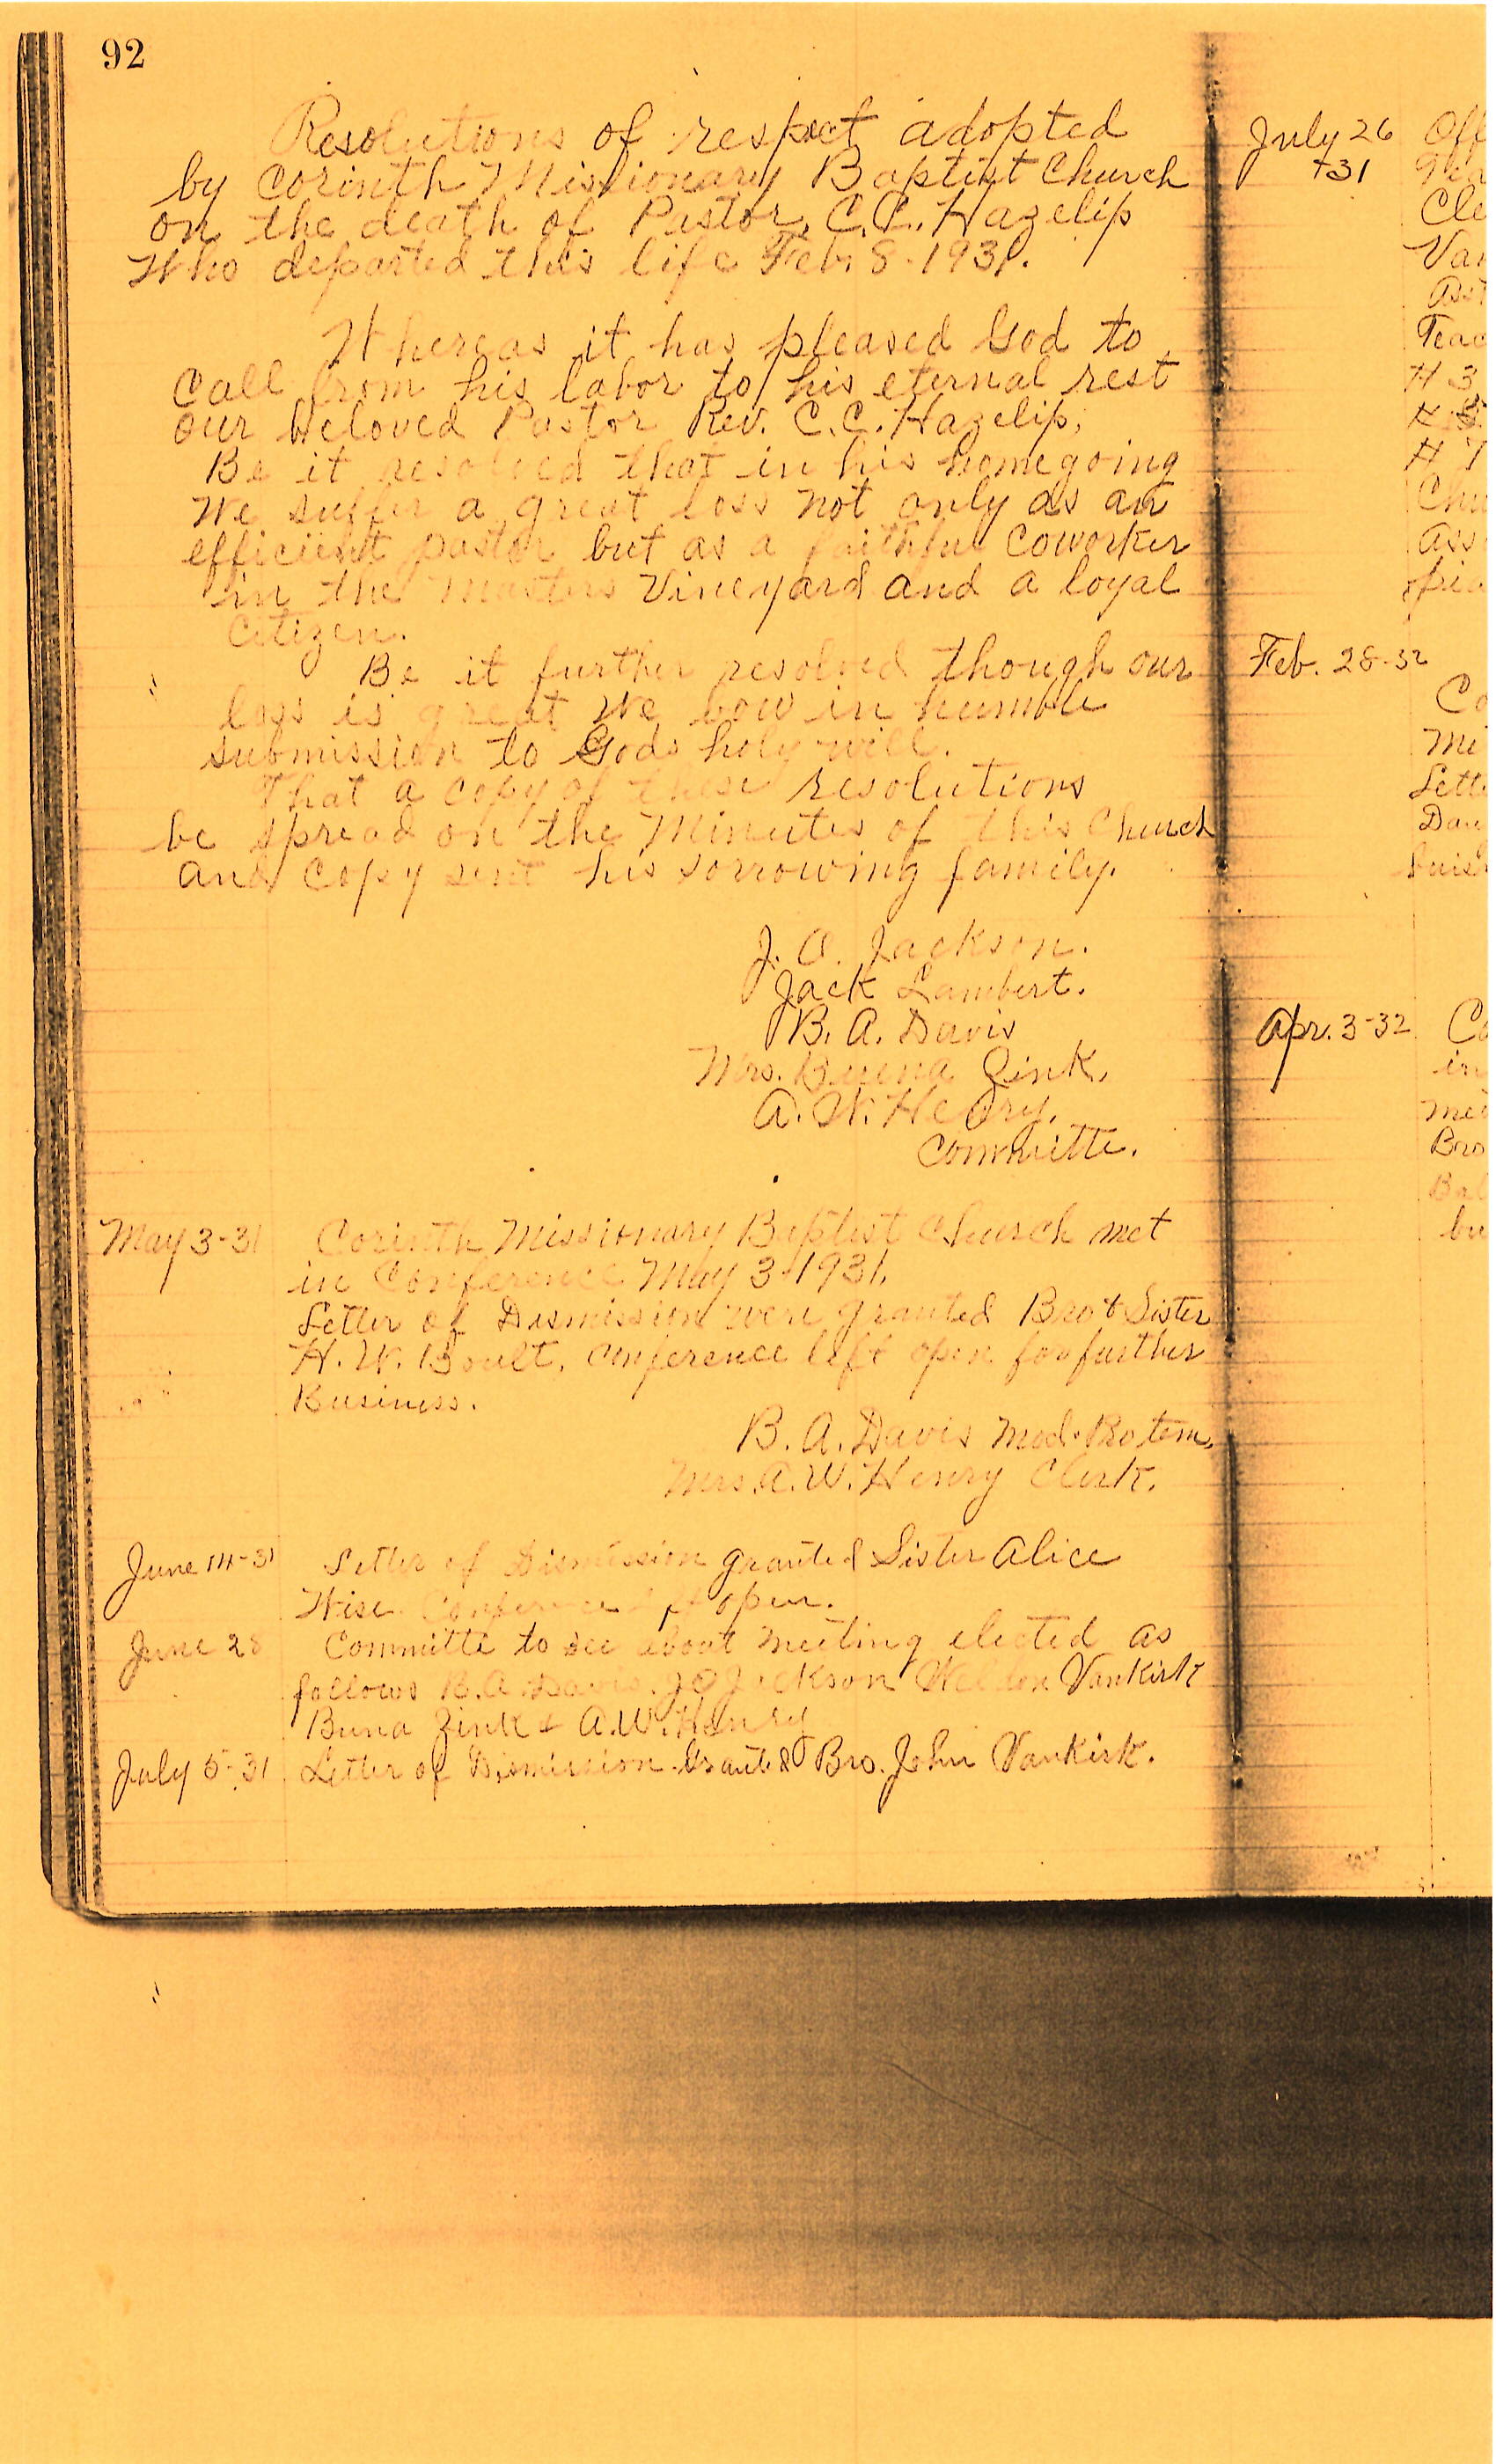 92
Resolutions of respect adopted
by Corinth Missionary Baptist Church
on the death of Pastor, C.C. Hazelip
Who departed this life Feb. 8-1931.
Whereas it has pleased God to
Call from his labor to his eternal rest
our beloved Pastor Rev. C.C. Hazelip;
Be it resolved that in his homegoing
We suffer a great loss not only as an
efficient pastor but as a faithful coworker
in the Masters Vineyard and a loyal
Citizen.
Be it further resolved though our
loss is great we bow in humble
submission to Gods holy will.
That a copy of these resolutions
be spread on the Minutes of this Church
and copy sent his sorrowing family.
J. O. Jackson.
Jack Lambert.
B. A. Davis
Mrs. Buena Zink.
A. W. Henry.
Committe.
May 3-31 Corinth Missionary Baptist Church met
in Conference May 3-1931.
Letter of Dismission were granted Bro & Sister
H. W. Boult. Conference left open for further
Business.
B. A. Davis Mod. Protem.
Mrs. A. W. Henry Clerk.
June 14-31 Letter of Dismission granted Sister Alice
Wise. Conference left open.
June 28 Committe to see about meeting elected as
follows B. A. Davis. J O Jackson Weldon Vankirk
Buna Zink & A. W. Henry
July 5-31 Letter of Dismission Granted Bro. John Vankirk.
July 26
31
Feb. 28-32
Apr. 3-32